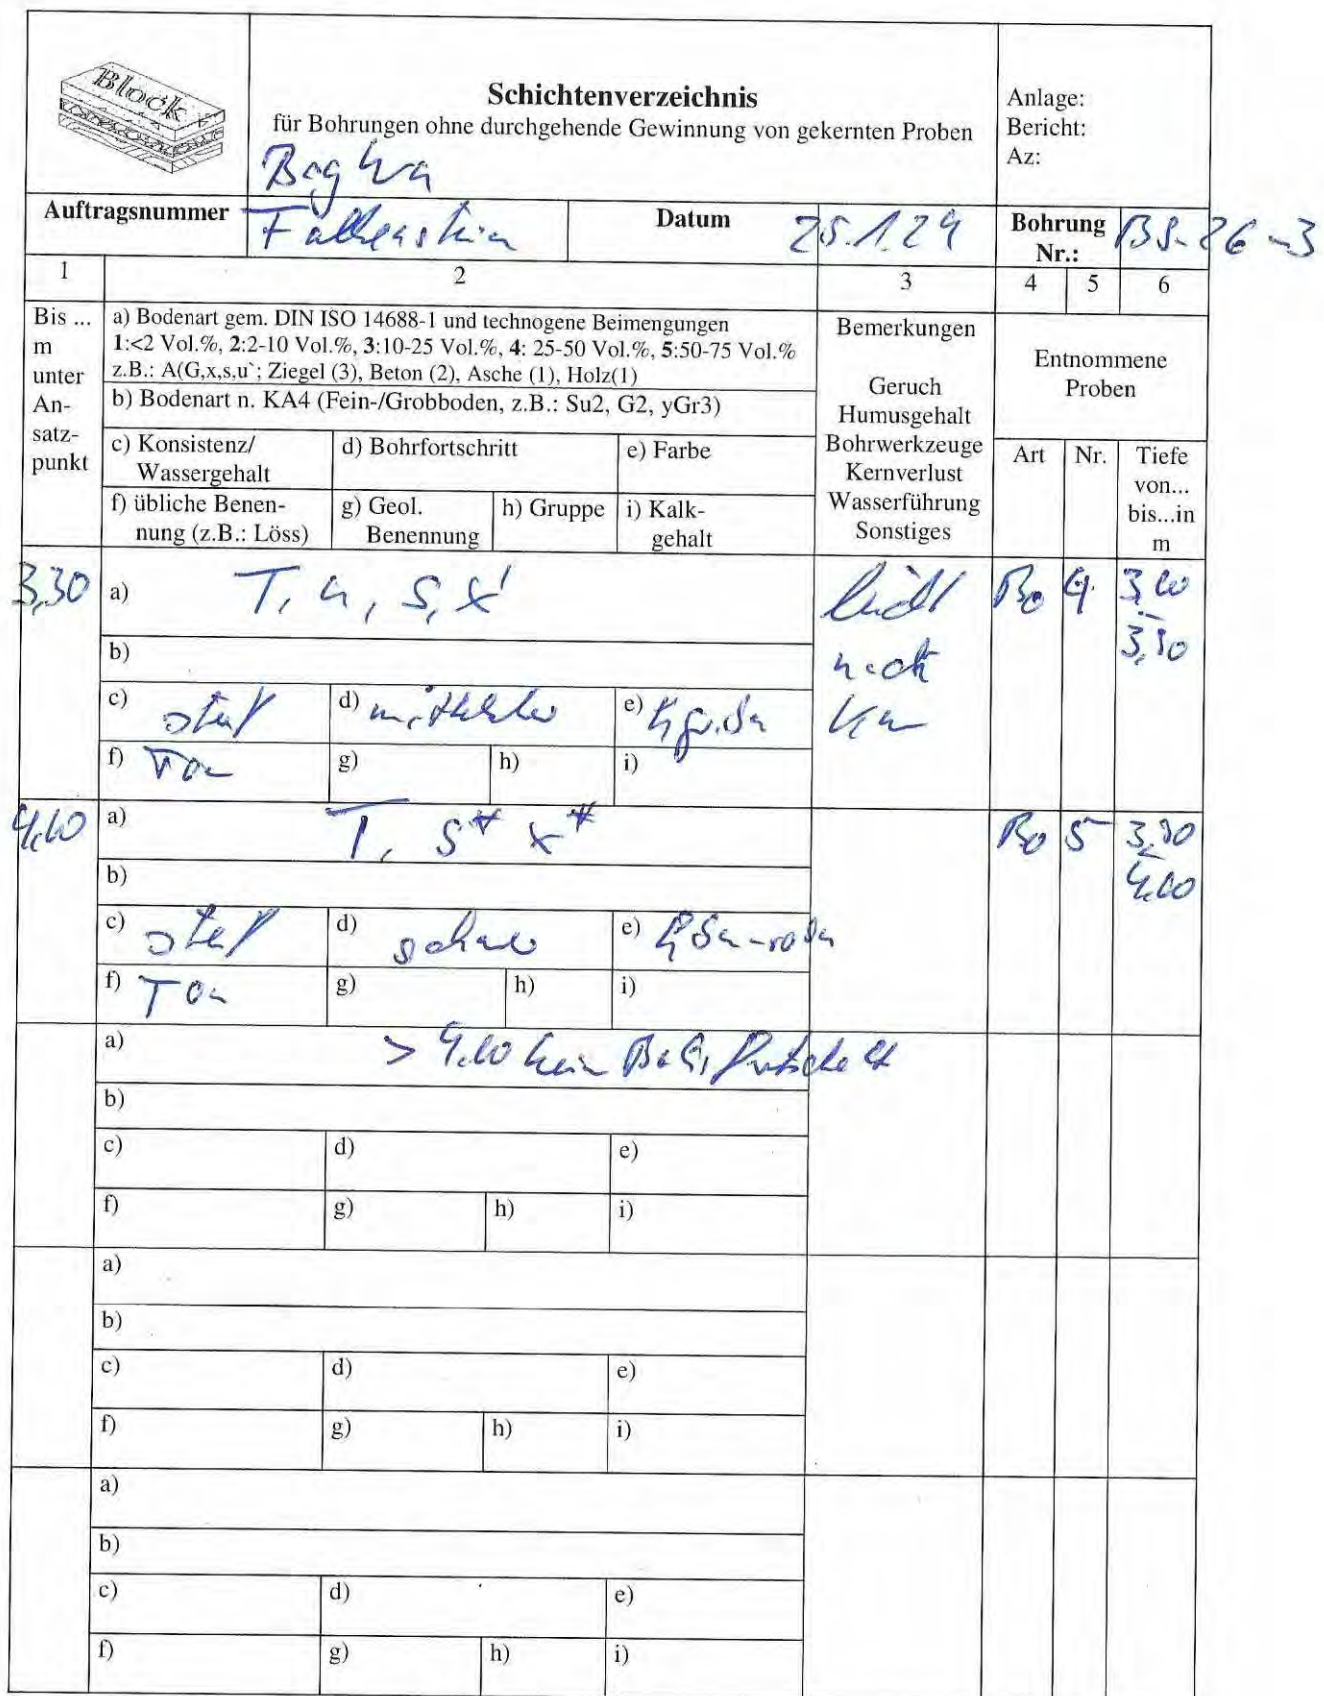 Block
Schichtenverzeichnis
für Bohrungen ohne durchgehende Gewinnung von gekernten Proben
Anlage:
Bericht:
Az:
Auftragsnummer
Falkenstein
Datum
25.1.24
Bohrung
Nr.:
BS-26-3
1
2
3
4
5
6
Bis ...
m
unter
An-
satz-
punkt
a) Bodenart gem. DIN ISO 14688-1 und technogene Beimengungen
1:<2 Vol.%, 2:2-10 Vol.%, 3:10-25 Vol.%, 4: 25-50 Vol.%, 5:50-75 Vol.%
z.B.: A(G,x,s,u`; Ziegel (3), Beton (2), Asche (1), Holz(1)
b) Bodenart n. KA4 (Fein-/Grobboden, z.B.: Su2, G2, yGr3)
c) Konsistenz/
Wassergehalt
d) Bohrfortschritt
e) Farbe
f) übliche Benen-
nung (z.B.: Löss)
g) Geol.
Benennung
h) Gruppe
i) Kalk-
gehalt
Bemerkungen
Geruch
Humusgehalt
Bohrwerkzeuge
Kernverlust
Wasserführung
Sonstiges
Entnommene
Proben
Art
Nr.
Tiefe
von...
bis...in
m
3,30
a) T, u, s, x'
b)
c) steif
d) mittelschw
e)
f) Ton
g)
h)
i)
Bo
4
a) T, s* x*
b)
c) steif
d) schwer
e)
f) Ton
g)
h)
i)
Bo
5
a)
b)
c)
d)
e)
f)
g)
h)
i)
a)
b)
c)
d)
e)
f)
g)
h)
i)
a)
b)
c)
d)
e)
f)
g)
h)
i)